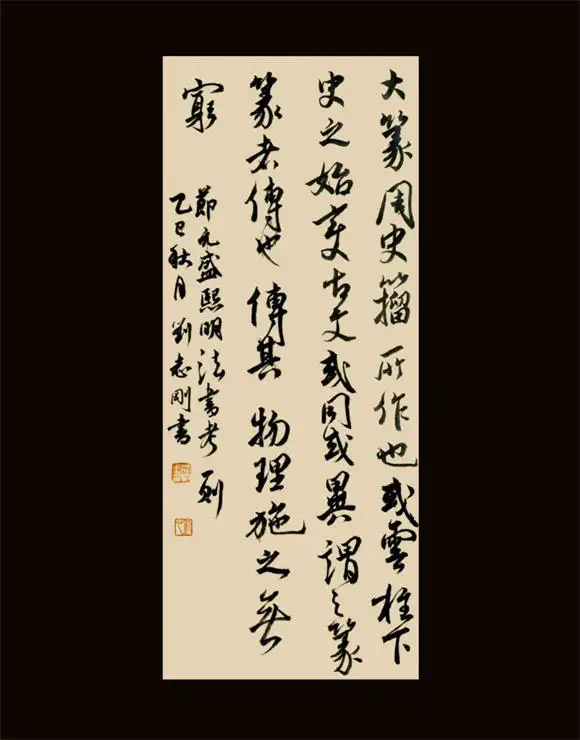 大篆周史籀所作也或雲柱下
史之始變古文或同或異謂之篆
篆者傳也傳其物理施之無
窮
節元盛熙明法書考則
乙巳秋月劉志剛書